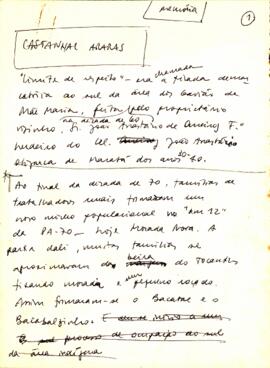 memória
1
CASTANHAL ARARAS
"Limite de respeito" - era chamada a picada demar
catória ao sul da área dos Gaviões de
Mãe Maria, feita pelo proprietário
vizinho, na década de 60, Sr. João Anastácio de Queiroz F.
herdeiro do Cel. João Anastácio
oligarca de Marabá dos anos 30-40.
Ao final da década de 70, famílias de
trabalhadores rurais formaram um
novo núcleo populacional no "km 12"
da PA-70 - hoje Morada Nova. A
partir dali, muitas famílias se
aproximaram da beira do Tocantins
fixando morada e um pequeno roçado.
Assim formaram-se o Bacabal e o
Bacabalzinho. E deu-se início a um
processo de ocupação ao sul
da área indígena